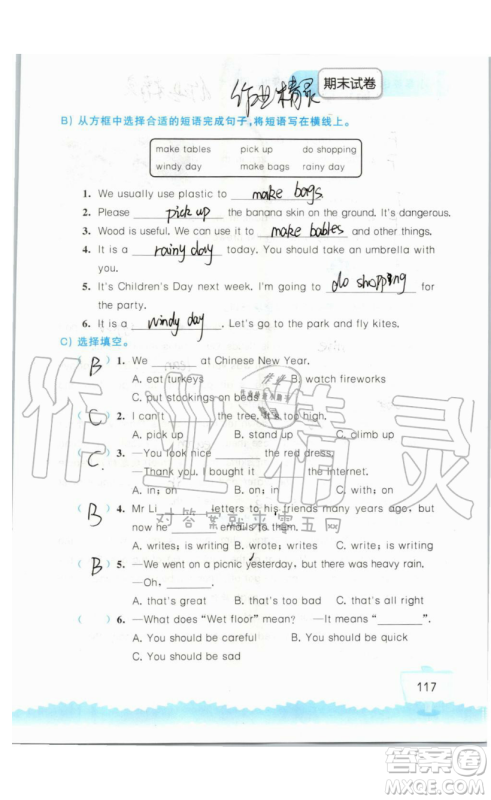 作业精灵 期末试卷
B) 从方框中选择合适的短语完成句子,将短语写在横线上。
make tables pick up do shopping
windy day make bags rainy day
1. We usually use plastic to make bags.
2. Please pick up the banana skin on the ground. It's dangerous.
3. Wood is useful. We can use it to make bables and other things.
4. It is a rainy day today. You should take an umbrella with
you.
5. It's Children's Day next week. I'm going to do shopping for
the party.
6. It is a windy day. Let's go to the park and fly kites.
C) 选择填空。
( B ) 1. We ______ at Chinese New Year.
A. eat turkeys B. watch fireworks
C. put stockings on beds
( C ) 2. I can't ______ the tree. It's too high.
A. pick up B. up C. climb up
( C ) 3. —You look nice ______ the red dress.
—Thank you. I bought it ______ the Internet.
A. in; on B. on; in C. with; on
( B ) 4. Mr Li ______ letters to his friends many years ago, but
now he ______ emails to them.
A. writes; is writing B. wrote; writes C. wrote; is writing
( B ) 5. —We went on a picnic yesterday, but there was heavy rain.
—Oh, ______.
A. that's great B. that's too bad C. that's all right
( ) 6. —What does "Wet floor" mean? —It means "______"
A. You should be careful B. You should be quick
C. You should be sad
117
作业精灵
对答案就来零五网
答案圈